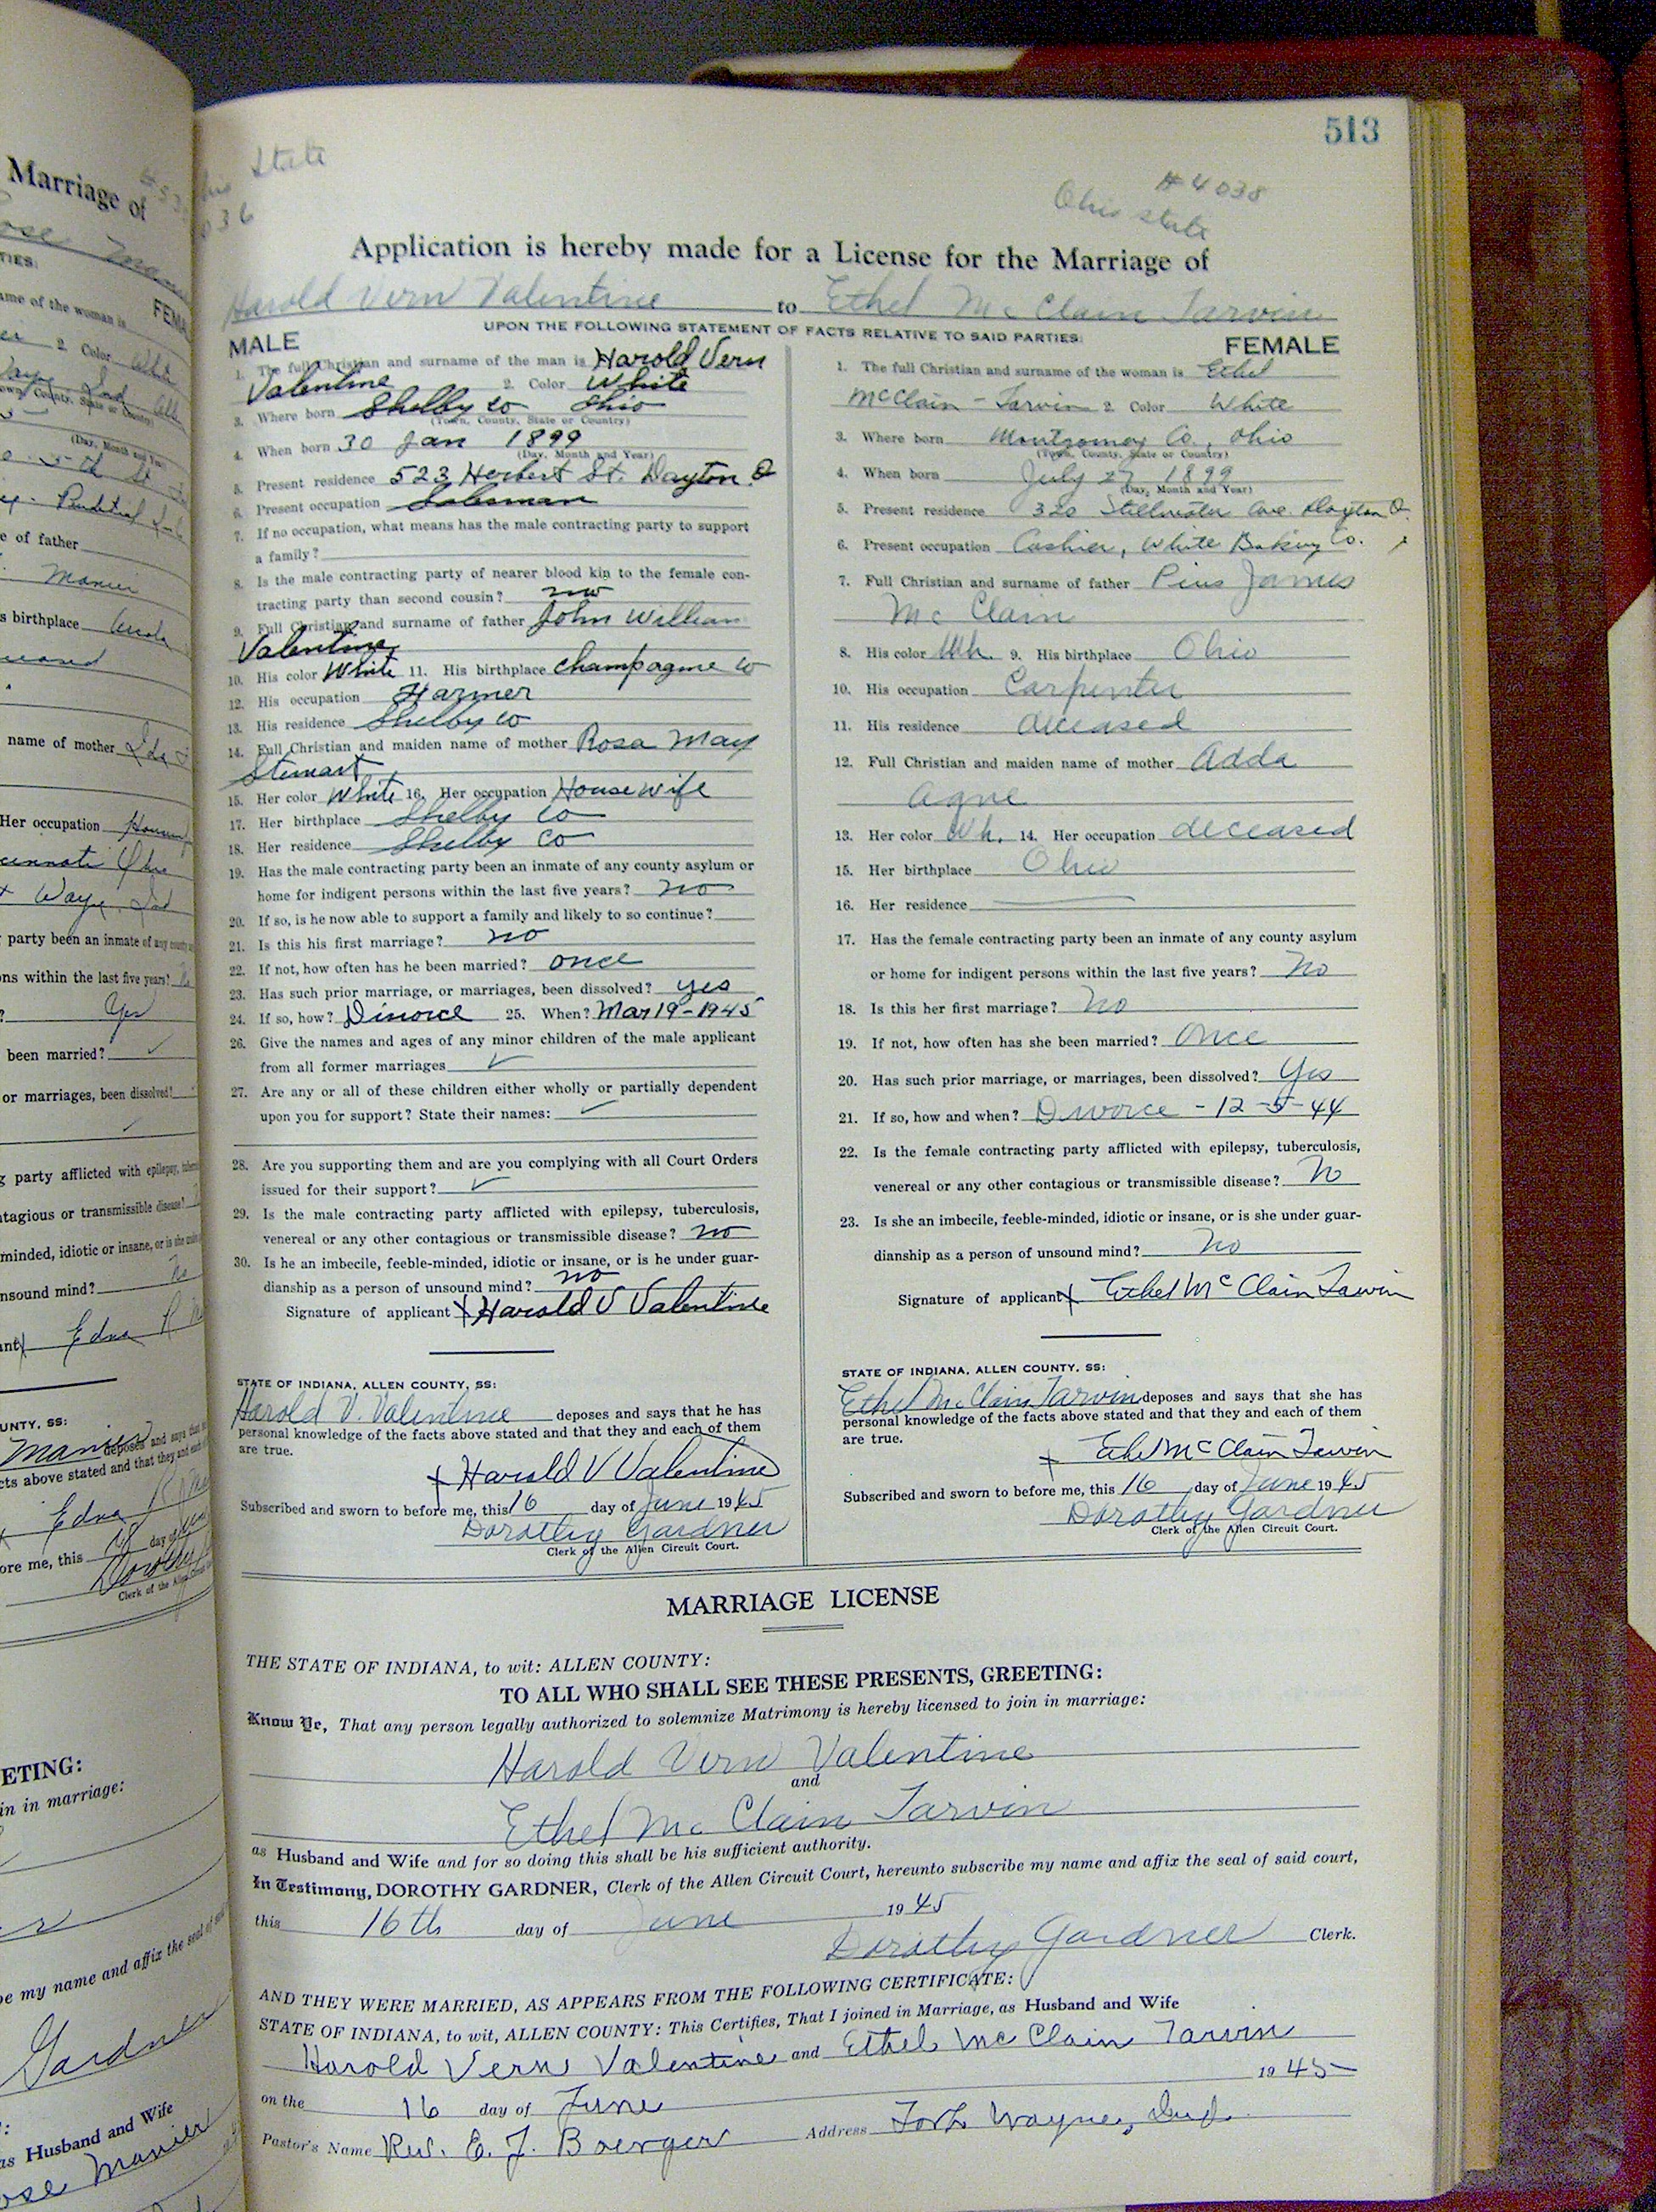 513
State
036
# 4038
Ohio State
Application is hereby made for a License for the Marriage of
Harold Vern Valentine to Ethel McClain Tarvin
UPON THE FOLLOWING STATEMENT OF FACTS RELATIVE TO SAID PARTIES:
MALE
1. The full Christian and surname of the man is Harold Vern
Valentine 2. Color White
3. Where born Shelby Co Ohio
(Town, County, State or Country)
4. When born 30 Jan 1899
(Day, Month and Year)
5. Present residence 523 Herbert St. Dayton O
6. Present occupation Salesman
7. If no occupation, what means has the male contracting party to support
a family?
8. Is the male contracting party of nearer blood kin to the female con-
tracting party than second cousin? no
9. Full Christian and surname of father John William
Valentine
10. His color White 11. His birthplace Champagne Co
12. His occupation Farmer
13. His residence Shelby Co
14. Full Christian and maiden name of mother Rosa May
Stewart
15. Her color White 16. Her occupation Housewife
17. Her birthplace Shelby Co
18. Her residence Shelby Co
19. Has the male contracting party been an inmate of any county asylum or
home for indigent persons within the last five years? no
20. If so, is he now able to support a family and likely to so continue?
21. Is this his first marriage? no
22. If not, how often has he been married? once
23. Has such prior marriage, or marriages, been dissolved? yes
24. If so, how? Divorce 25. When? Mar 19-1945
26. Give the names and ages of any minor children of the male applicant
from all former marriages ✓
27. Are any or all of these children either wholly or partially dependent
upon you for support? State their names: ✓
28. Are you supporting them and are you complying with all Court Orders
issued for their support? ✓
29. Is the male contracting party afflicted with epilepsy, tuberculosis,
venereal or any other contagious or transmissible disease? no
30. Is he an imbecile, feeble-minded, idiotic or insane, or is he under guar-
dianship as a person of unsound mind? no
Signature of applicant X Harold V Valentine
STATE OF INDIANA, ALLEN COUNTY, SS:
Harold V. Valentine deposes and says that he has
personal knowledge of the facts above stated and that they and each of them
are true.
X Harold V Valentine
Subscribed and sworn to before me, this 16 day of June 1945
Dorothy Gardner
Clerk of the Allen Circuit Court.
FEMALE
1. The full Christian and surname of the woman is Ethel
McClain - Tarvin 2. Color White
3. Where born Montgomery Co., Ohio
(Town, County, State or Country)
4. When born July 27 1899
(Day, Month and Year)
5. Present residence 320 Stillwater Ave. Dayton O.
6. Present occupation Cashier, White Baking Co.
7. Full Christian and surname of father Pius James
McClain
8. His color Wh. 9. His birthplace Ohio
10. His occupation Carpenter
11. His residence deceased
12. Full Christian and maiden name of mother Adda
Agne
13. Her color Wh. 14. Her occupation deceased
15. Her birthplace Ohio
16. Her residence
17. Has the female contracting party been an inmate of any county asylum
or home for indigent persons within the last five years? No
18. Is this her first marriage? No
19. If not, how often has she been married? Once
20. Has such prior marriage, or marriages, been dissolved? Yes
21. If so, how and when? Divorce - 12-5-44
22. Is the female contracting party afflicted with epilepsy, tuberculosis,
venereal or any other contagious or transmissible disease? No
23. Is she an imbecile, feeble-minded, idiotic or insane, or is she under guar-
dianship as a person of unsound mind? No
Signature of applicant X Ethel McClain Tarvin
STATE OF INDIANA, ALLEN COUNTY, SS:
Ethel McClain Tarvin deposes and says that she has
personal knowledge of the facts above stated and that they and each of them
are true.
X Ethel McClain Tarvin
Subscribed and sworn to before me, this 16 day of June 1945
Dorothy Gardner
Clerk of the Allen Circuit Court.
MARRIAGE LICENSE
THE STATE OF INDIANA, to wit: ALLEN COUNTY:
TO ALL WHO SHALL SEE THESE PRESENTS, GREETING:
Know Ye, That any person legally authorized to solemnize Matrimony is hereby licensed to join in marriage:
Harold Vern Valentine
and
Ethel McClain Tarvin
as Husband and Wife and for so doing this shall be his sufficient authority.
In Testimony, DOROTHY GARDNER, Clerk of the Allen Circuit Court, hereunto subscribe my name and affix the seal of said court,
this 16th day of June 1945
Dorothy Gardner Clerk.
AND THEY WERE MARRIED, AS APPEARS FROM THE FOLLOWING CERTIFICATE:
STATE OF INDIANA, to wit, ALLEN COUNTY: This Certifies, That I joined in Marriage, as Husband and Wife
Harold Vern Valentine and Ethel McClain Tarvin
on the 16 day of June 1945
Pastor's Name Rev. E. J. Boerger Address Fort Wayne, Ind.